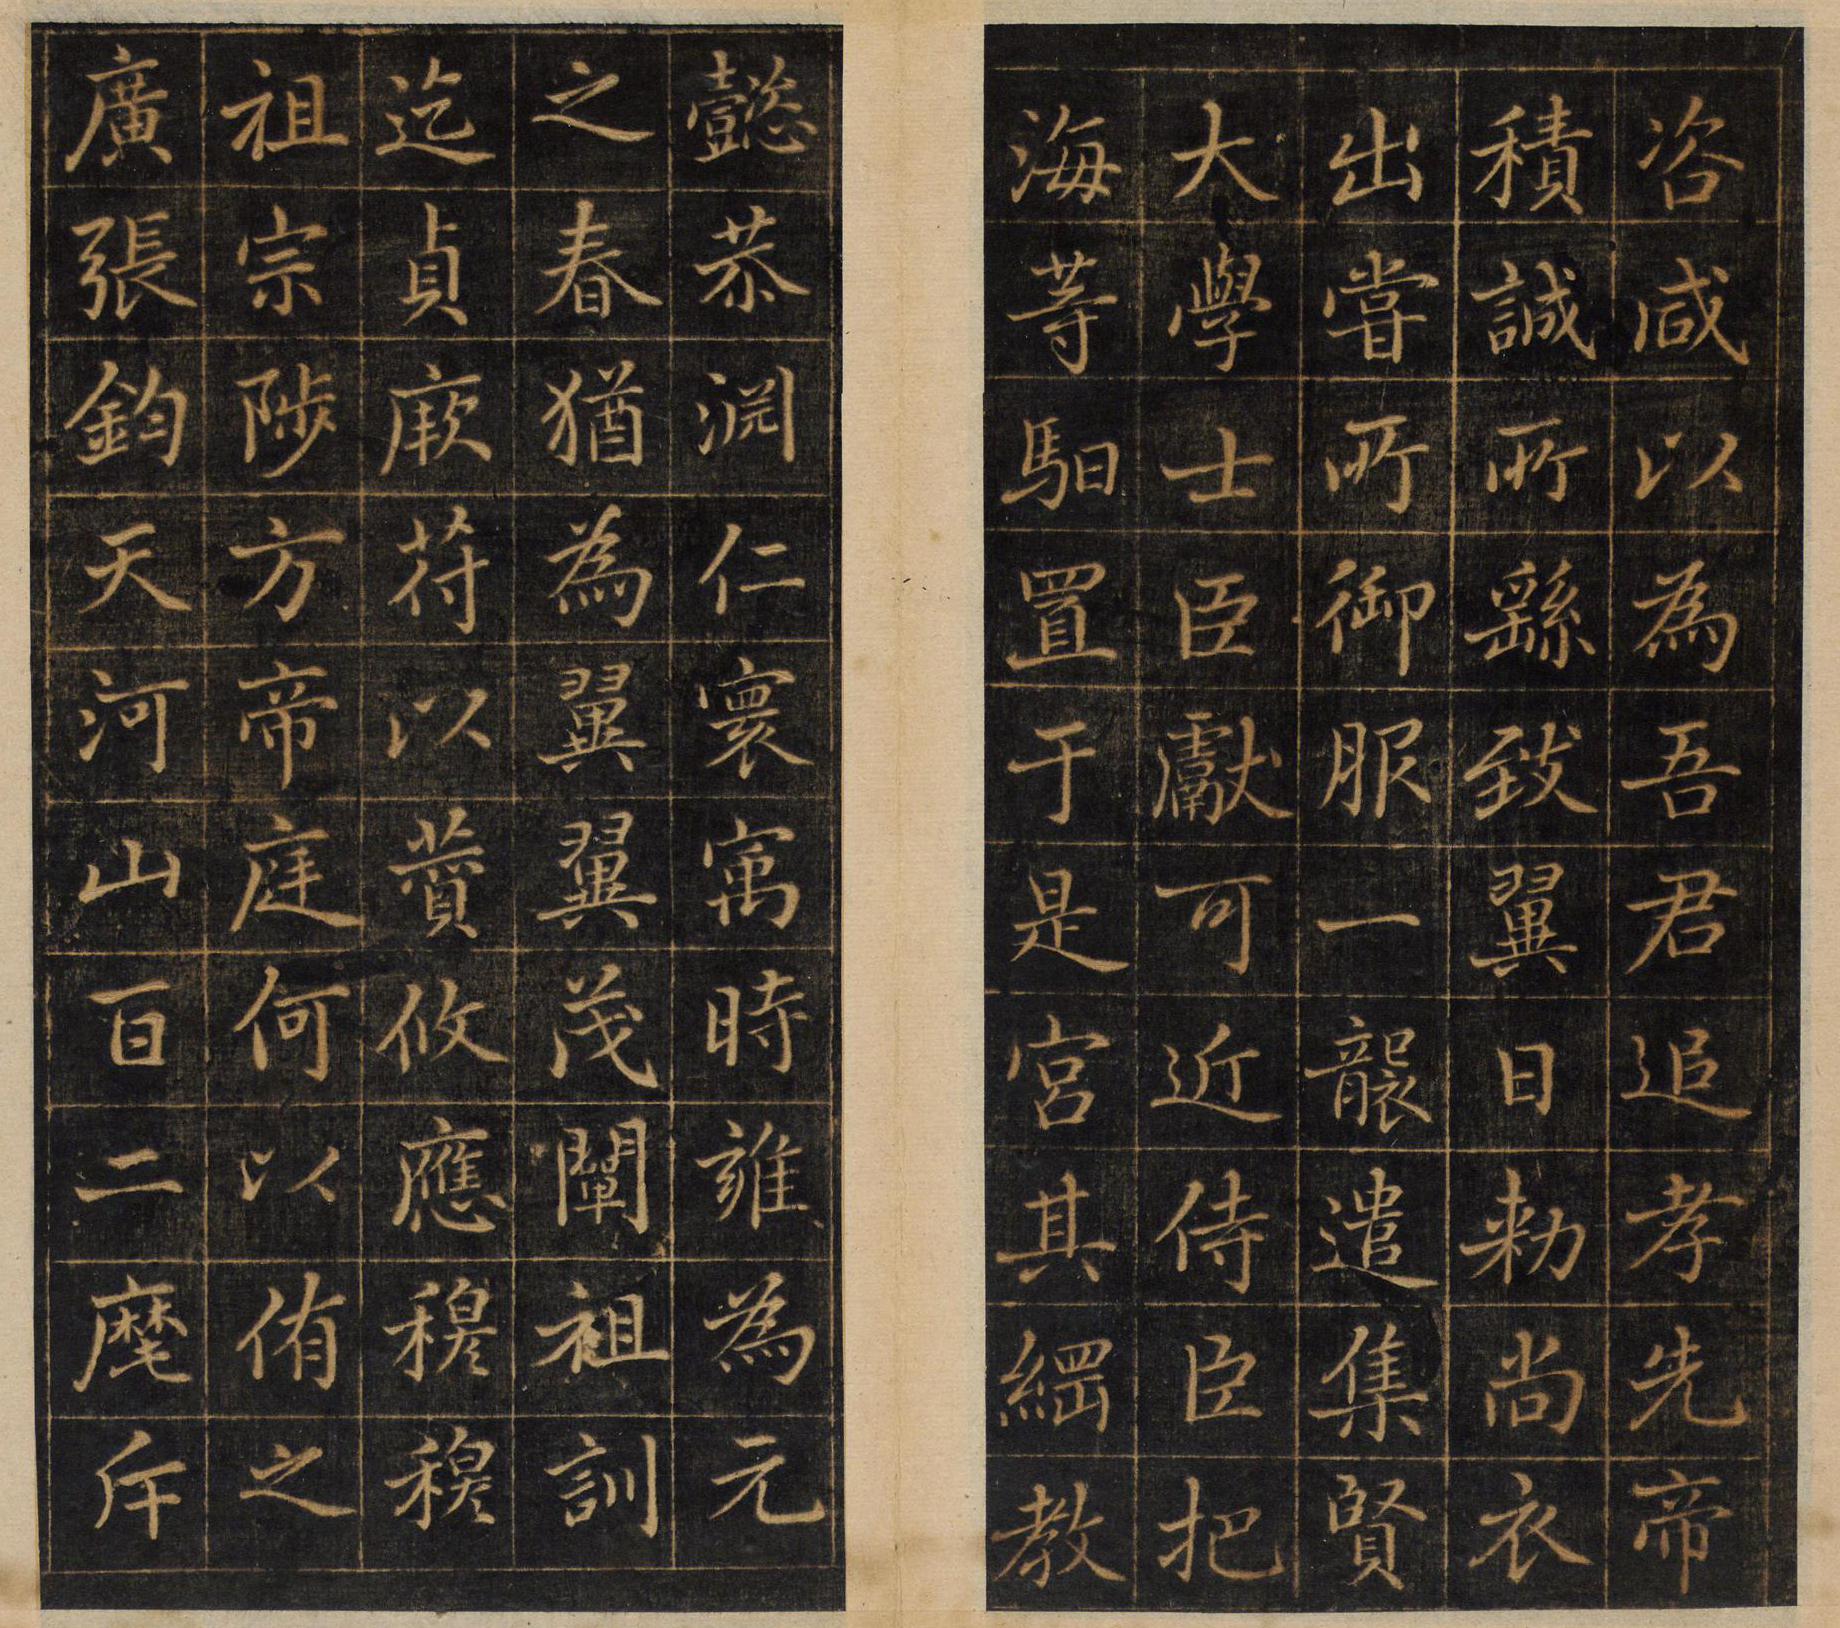 咨咸以為吾君追孝先帝
積誠所繇致翼日勑尚衣
出甞所御服一襲遣集賢
大學士臣獻可近侍臣把
海等馹置于是宮其綱教
懿恭淵仁寰寓時雍為元
之春猶為翼翼茂闡祖訓
迄貞厥符以蕢攸應穆穆
祖宗陟方帝庭何以侑之
廣張鈞天河山百二麾斥